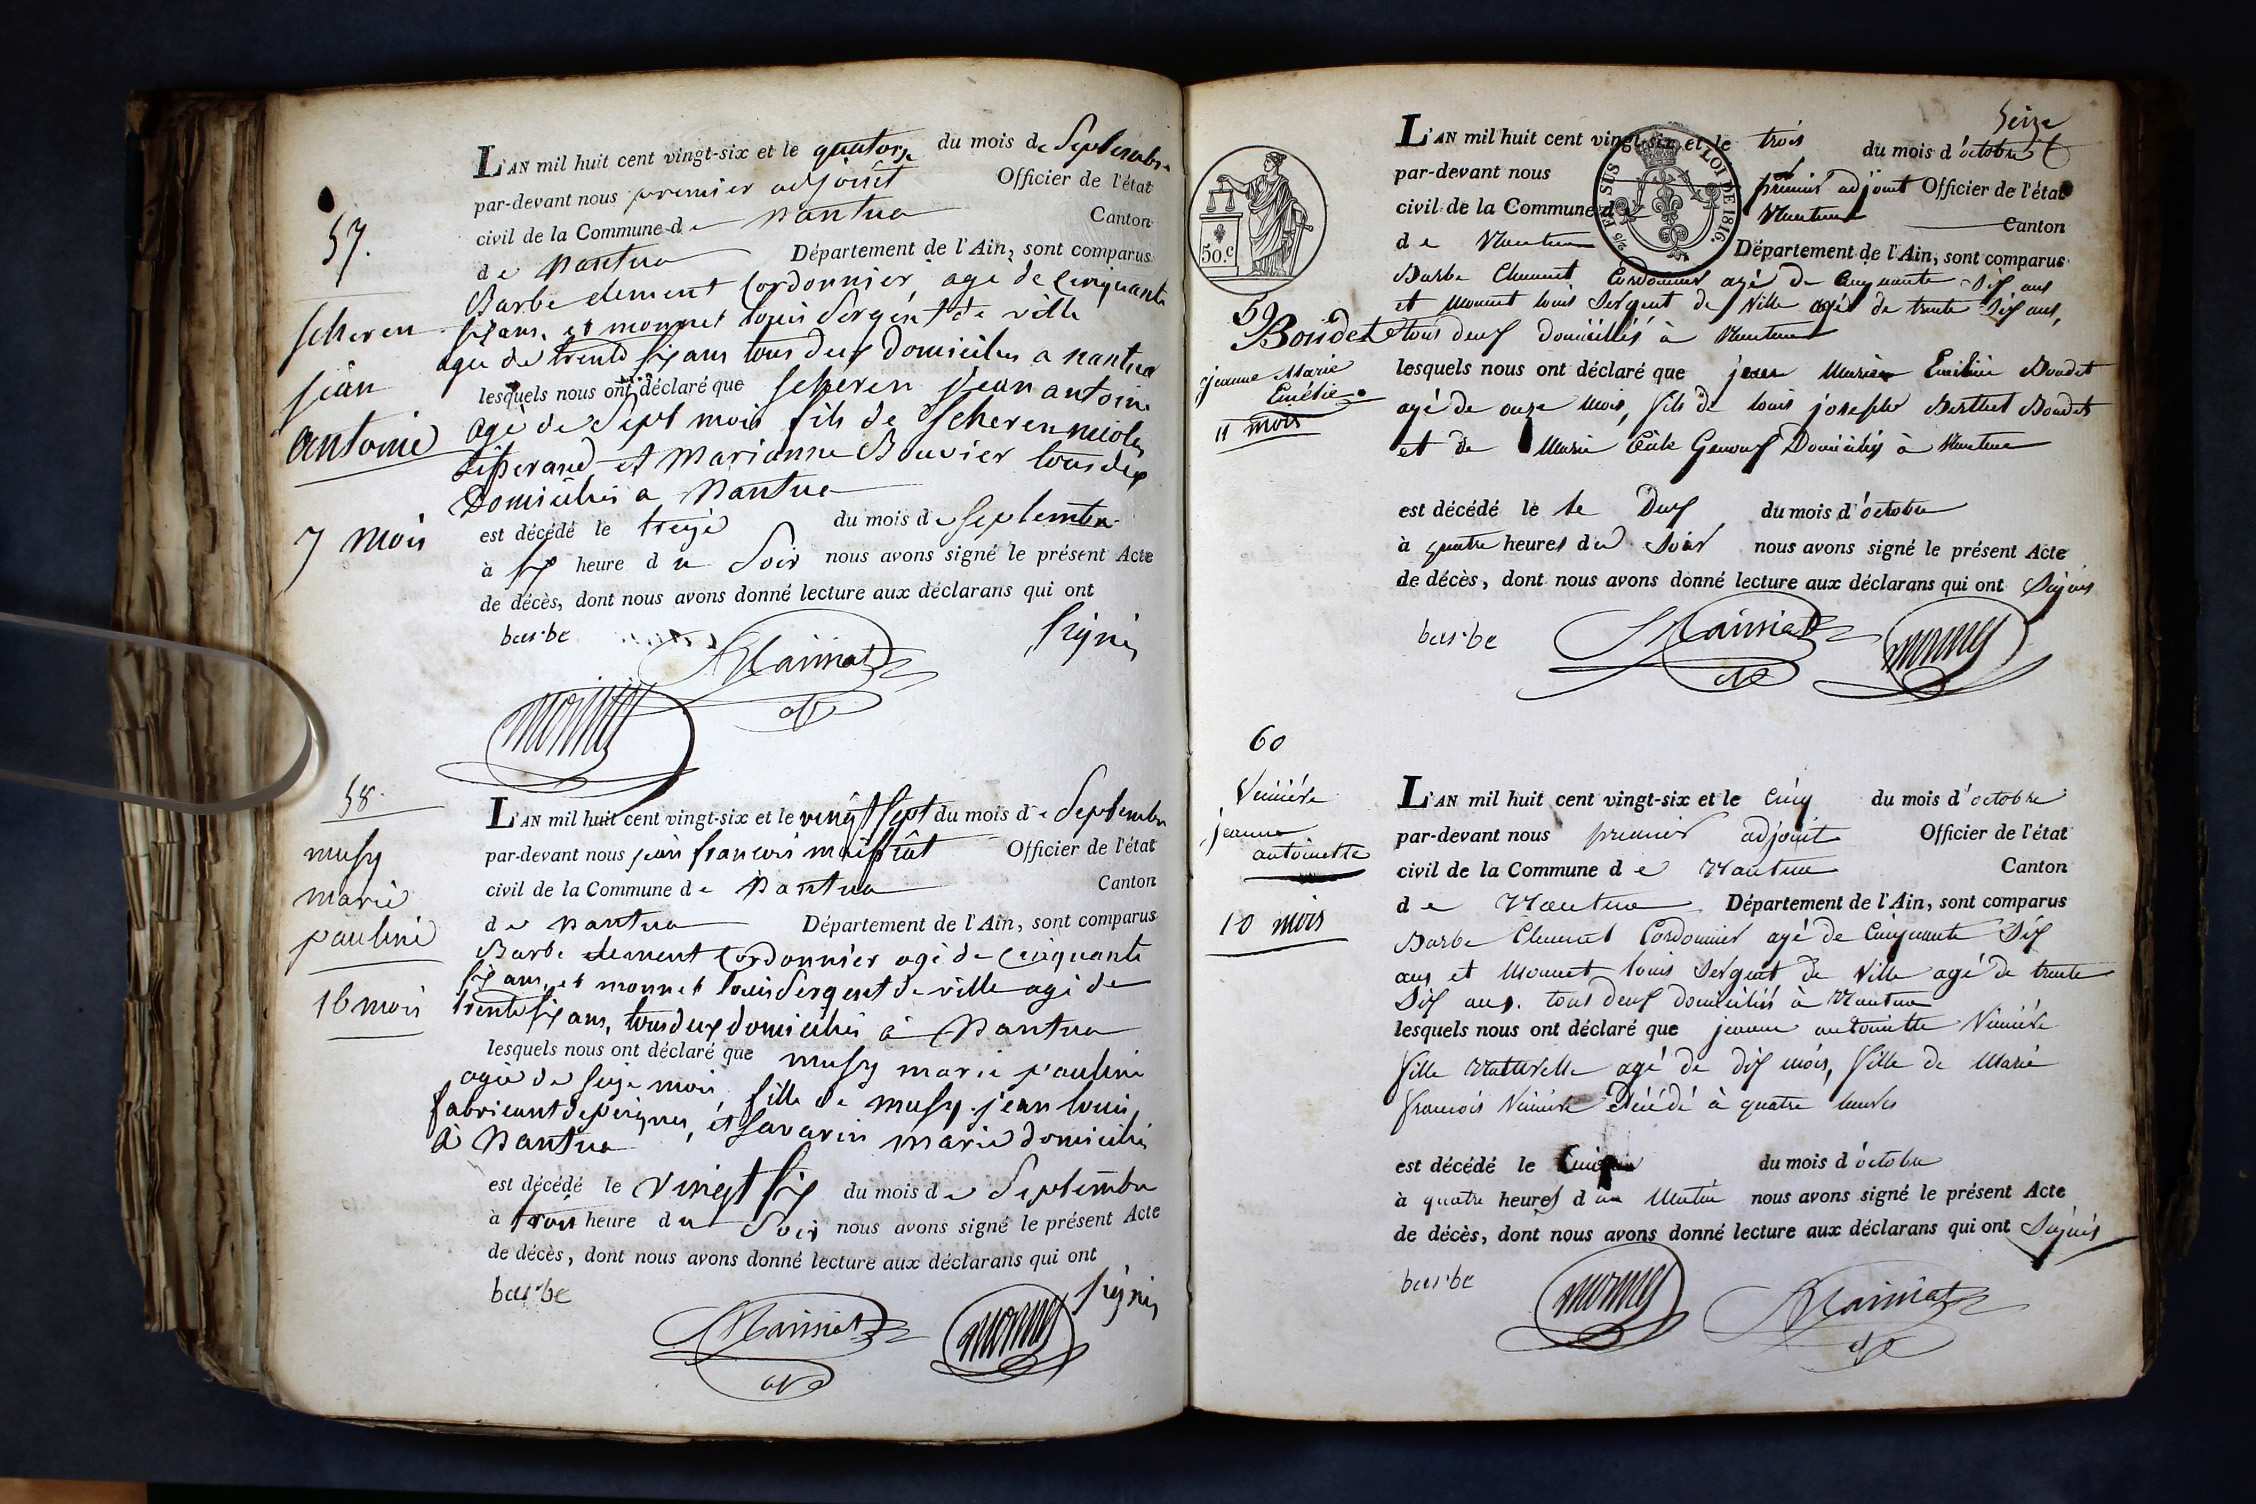 57.
scheren
jean
antoine
7 mois
L'AN mil huit cent vingt-six et le quatorze du mois de Septembre
par-devant nous premier adjoint Officier de l'état
civil de la Commune de nantua Canton
de nantua Département de l'Ain, sont comparus
Barbe clement Cordonnier, age de Cinquante
six ans, et monnet louis Sergent de ville
agé de trente six ans tous deux domiciliés a nantua
lesquels nous ont déclaré que scheren jean antoine
agé de Sept mois fils de Scheren nicolas
et Marianne Bouvier tous deux
Domiciliés a nantua
est décédé le treize du mois de Septembre
à six heure du Soir nous avons signé le présent Acte
de décès, dont nous avons donné lecture aux déclarans qui ont
signés
barbe
58.
musy
marie
pauline
16 mois
L'AN mil huit cent vingt-six et le vingt sept du mois de Septembre
par-devant nous jean francois Officier de l'état
civil de la Commune de Nantua Canton
de nantua Département de l'Ain, sont comparus
Barbe clement Cordonnier agé de cinquante
six ans, et monnet louis Sergent de ville agé de
trente six ans, tous deux domiciliés à Nantua
lesquels nous ont déclaré que musy marie pauline
agée de seize mois, fille de musy jean louis,
fabricant de peignes, et Savarin marie domiciliés
à Nantua
est décédé le vingt six du mois de Septembre
à trois heure du Soir nous avons signé le présent Acte
de décès, dont nous avons donné lecture aux déclarans qui ont
signés
barbe
Seize
50.c
EN SUS LOI DE 1816.
59
Boudet
jeanne Marie
Emélie
11 mois
L'AN mil huit cent vingt-six et le trois du mois d'octobre
par-devant nous premier adjoint Officier de l'état
civil de la Commune de Nantua Canton
de Nantua Département de l'Ain, sont comparus
Barbe Clement Cordonnier agé de Cinquante Six ans
et Monnet louis Sergent de Ville agé de trente Six ans,
tous deux domiciliés à Nantua
lesquels nous ont déclaré que jean Marie Emilie Boudet
agé de onze mois, fils de louis joseph Berthet Boudet
et de Marie Domiciliés à Nantua
est décédé le le Deux du mois d'octobre
à quatre heures du Soir nous avons signé le présent Acte
de décès, dont nous avons donné lecture aux déclarans qui ont Signés
barbe
60
jeanne
antoinette
10 mois
L'AN mil huit cent vingt-six et le Cinq du mois d'octobre
par-devant nous premier adjoint Officier de l'état
civil de la Commune de Nantua Canton
de Nantua Département de l'Ain, sont comparus
Barbe Clement Cordonnier agé de Cinquante Six
ans et Monnet louis Sergent de Ville agé de trente
Six ans. tous deux domiciliés à Nantua
lesquels nous ont déclaré que jeanne antoinette
fille Naturelle agé de dix mois, fille de Marie
françois décédé à quatre heures
est décédé le Cinq du mois d'octobre
à quatre heures du Matin nous avons signé le présent Acte
de décès, dont nous avons donné lecture aux déclarans qui ont Signés
barbe